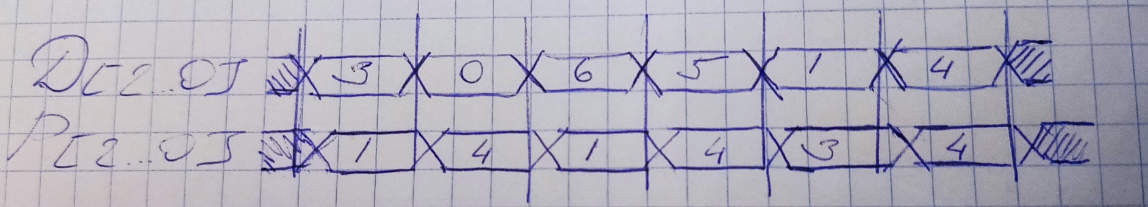 D[2..0] 3 0 6 5 1 4
P[2...0] 1 4 1 4 3 4